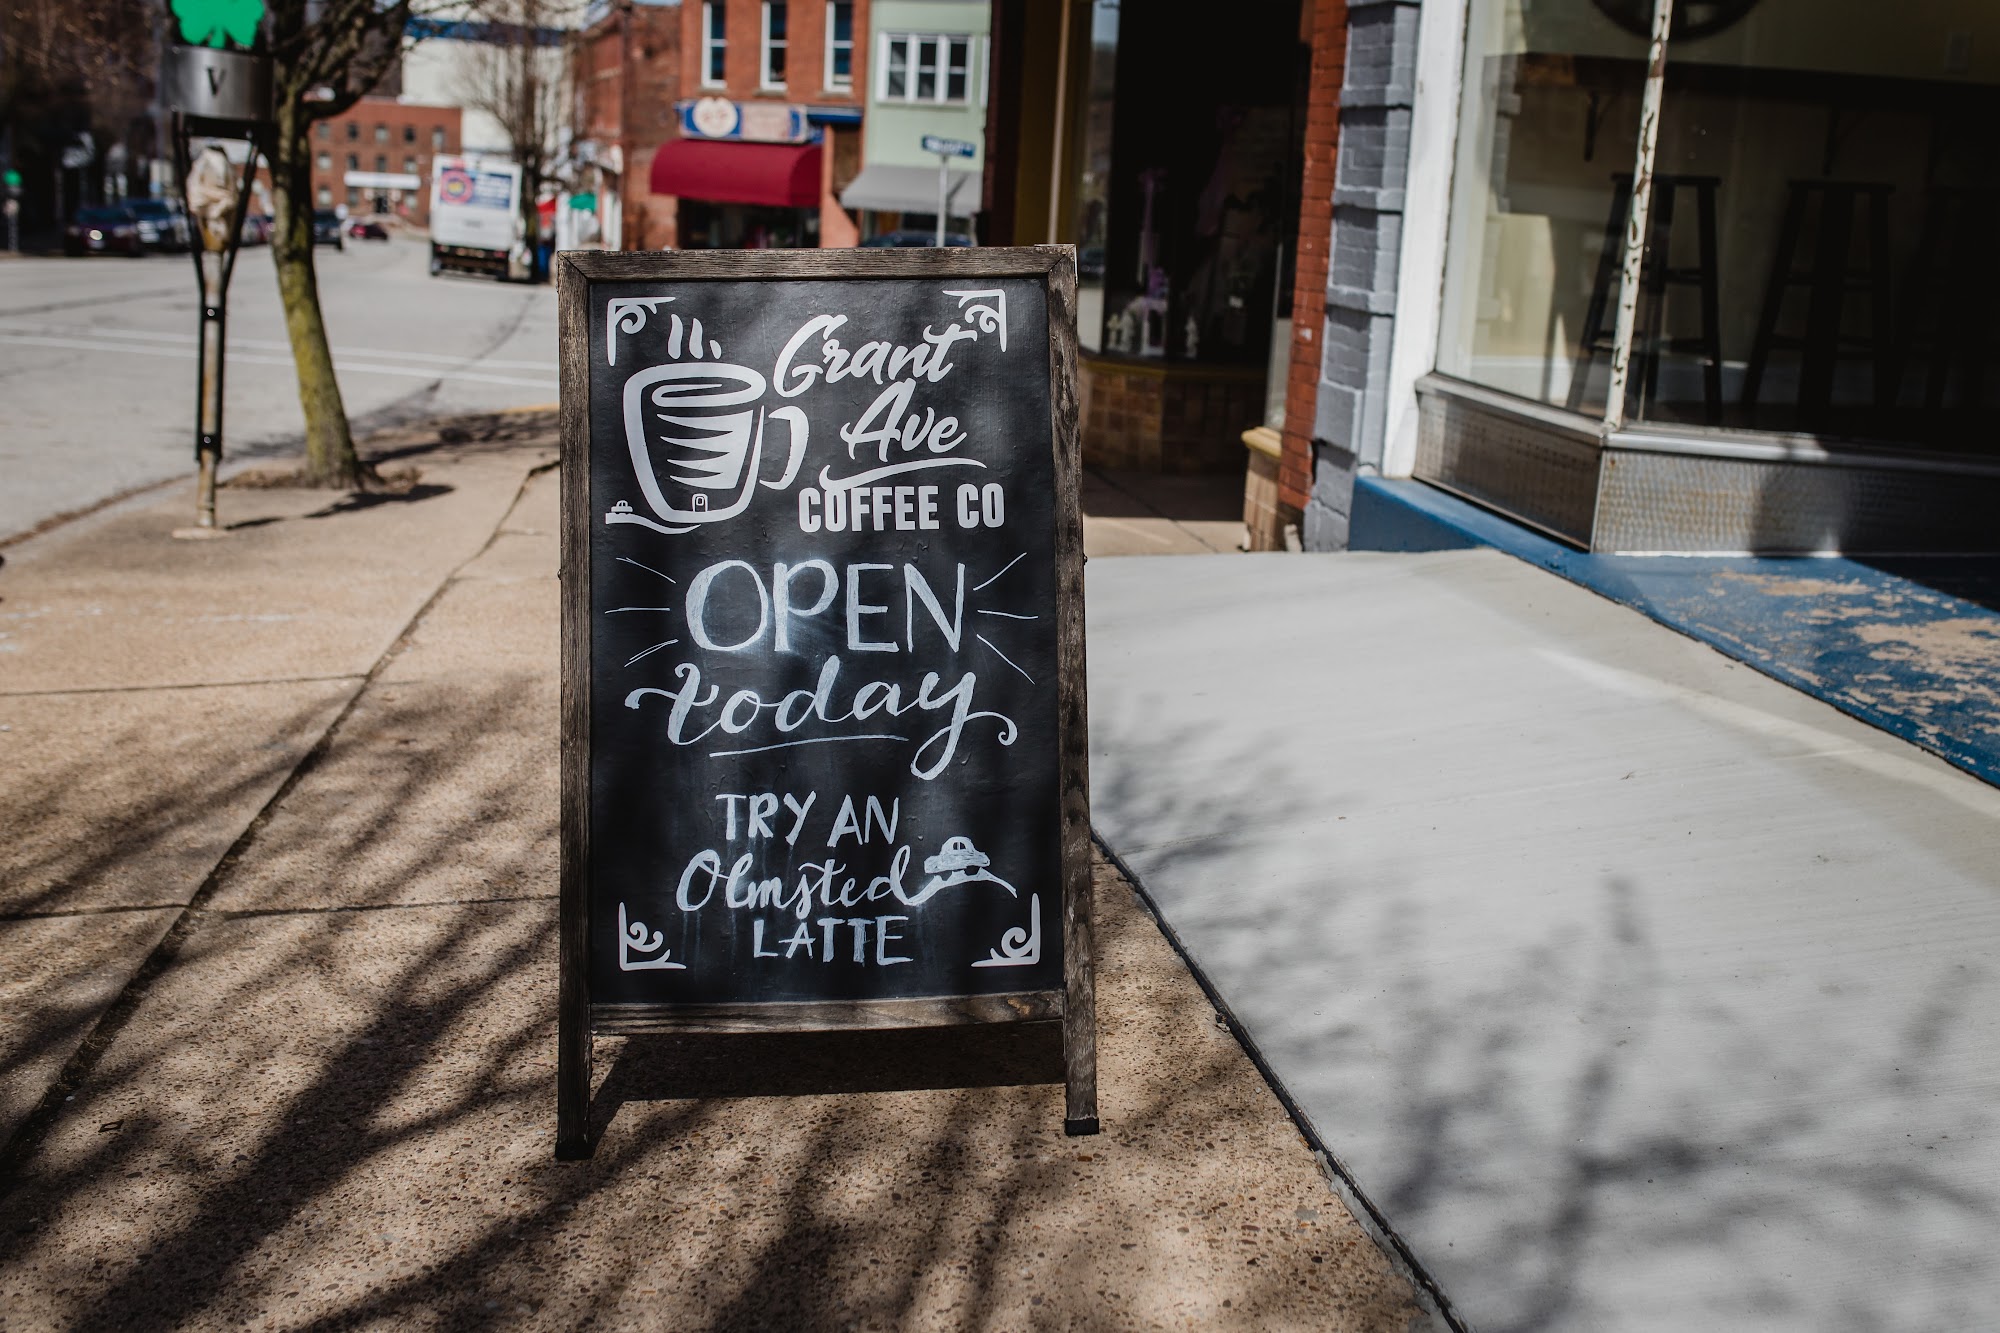 V
Grant
Ave
COFFEE CO
OPEN
today
TRY AN
Olmsted
LATTE